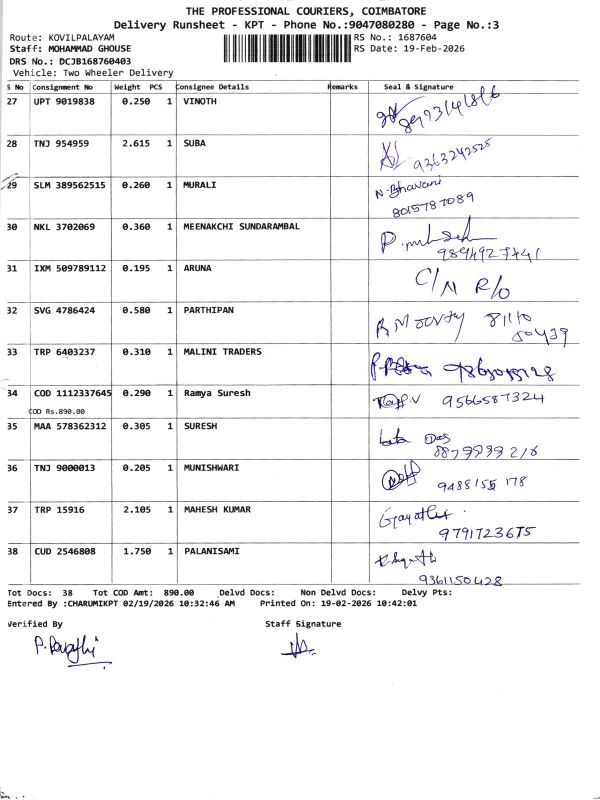 THE PROFESSIONAL COURIERS, COIMBATORE
Delivery Runsheet - KPT - Phone No.:9047080280 - Page No.:3
Route: KOVILPALAYAM RS No.: 1687604
Staff: MOHAMMAD GHOUSE RS Date: 19-Feb-2026
DRS No.: DCJB168760403
Vehicle: Two Wheeler Delivery
S No Consignment No Weight PCS Consignee Details Remarks Seal & Signature
27 UPT 9019838 0.250 1 VINOTH
28 TNJ 954959 2.615 1 SUBA
9363242525
29 SLM 389562515 0.260 1 MURALI N. Bhavani
8015787089
30 NKL 3702069 0.360 1 MEENAKCHI SUNDARAMBAL
9894927441
31 IXM 509789112 0.195 1 ARUNA C/N R/O
32 SVG 4786424 0.580 1 PARTHIPAN
33 TRP 6403237 0.310 1 MALINI TRADERS
34 COD 1112337645 0.290 1 Ramya Suresh 9566587324
COD Rs.890.00
35 MAA 578362312 0.305 1 SURESH
36 TNJ 9000013 0.205 1 MUNISHWARI
9488155 178
37 TRP 15916 2.105 1 MAHESH KUMAR Gayathri
9791723675
38 CUD 2546808 1.750 1 PALANISAMI
9361150428
Tot Docs: 38 Tot COD Amt: 890.00 Delvd Docs: Non Delvd Docs: Delvy Pts:
Entered By :CHARUMIKPT 02/19/2026 10:32:46 AM Printed On: 19-02-2026 10:42:01
Verified By Staff Signature